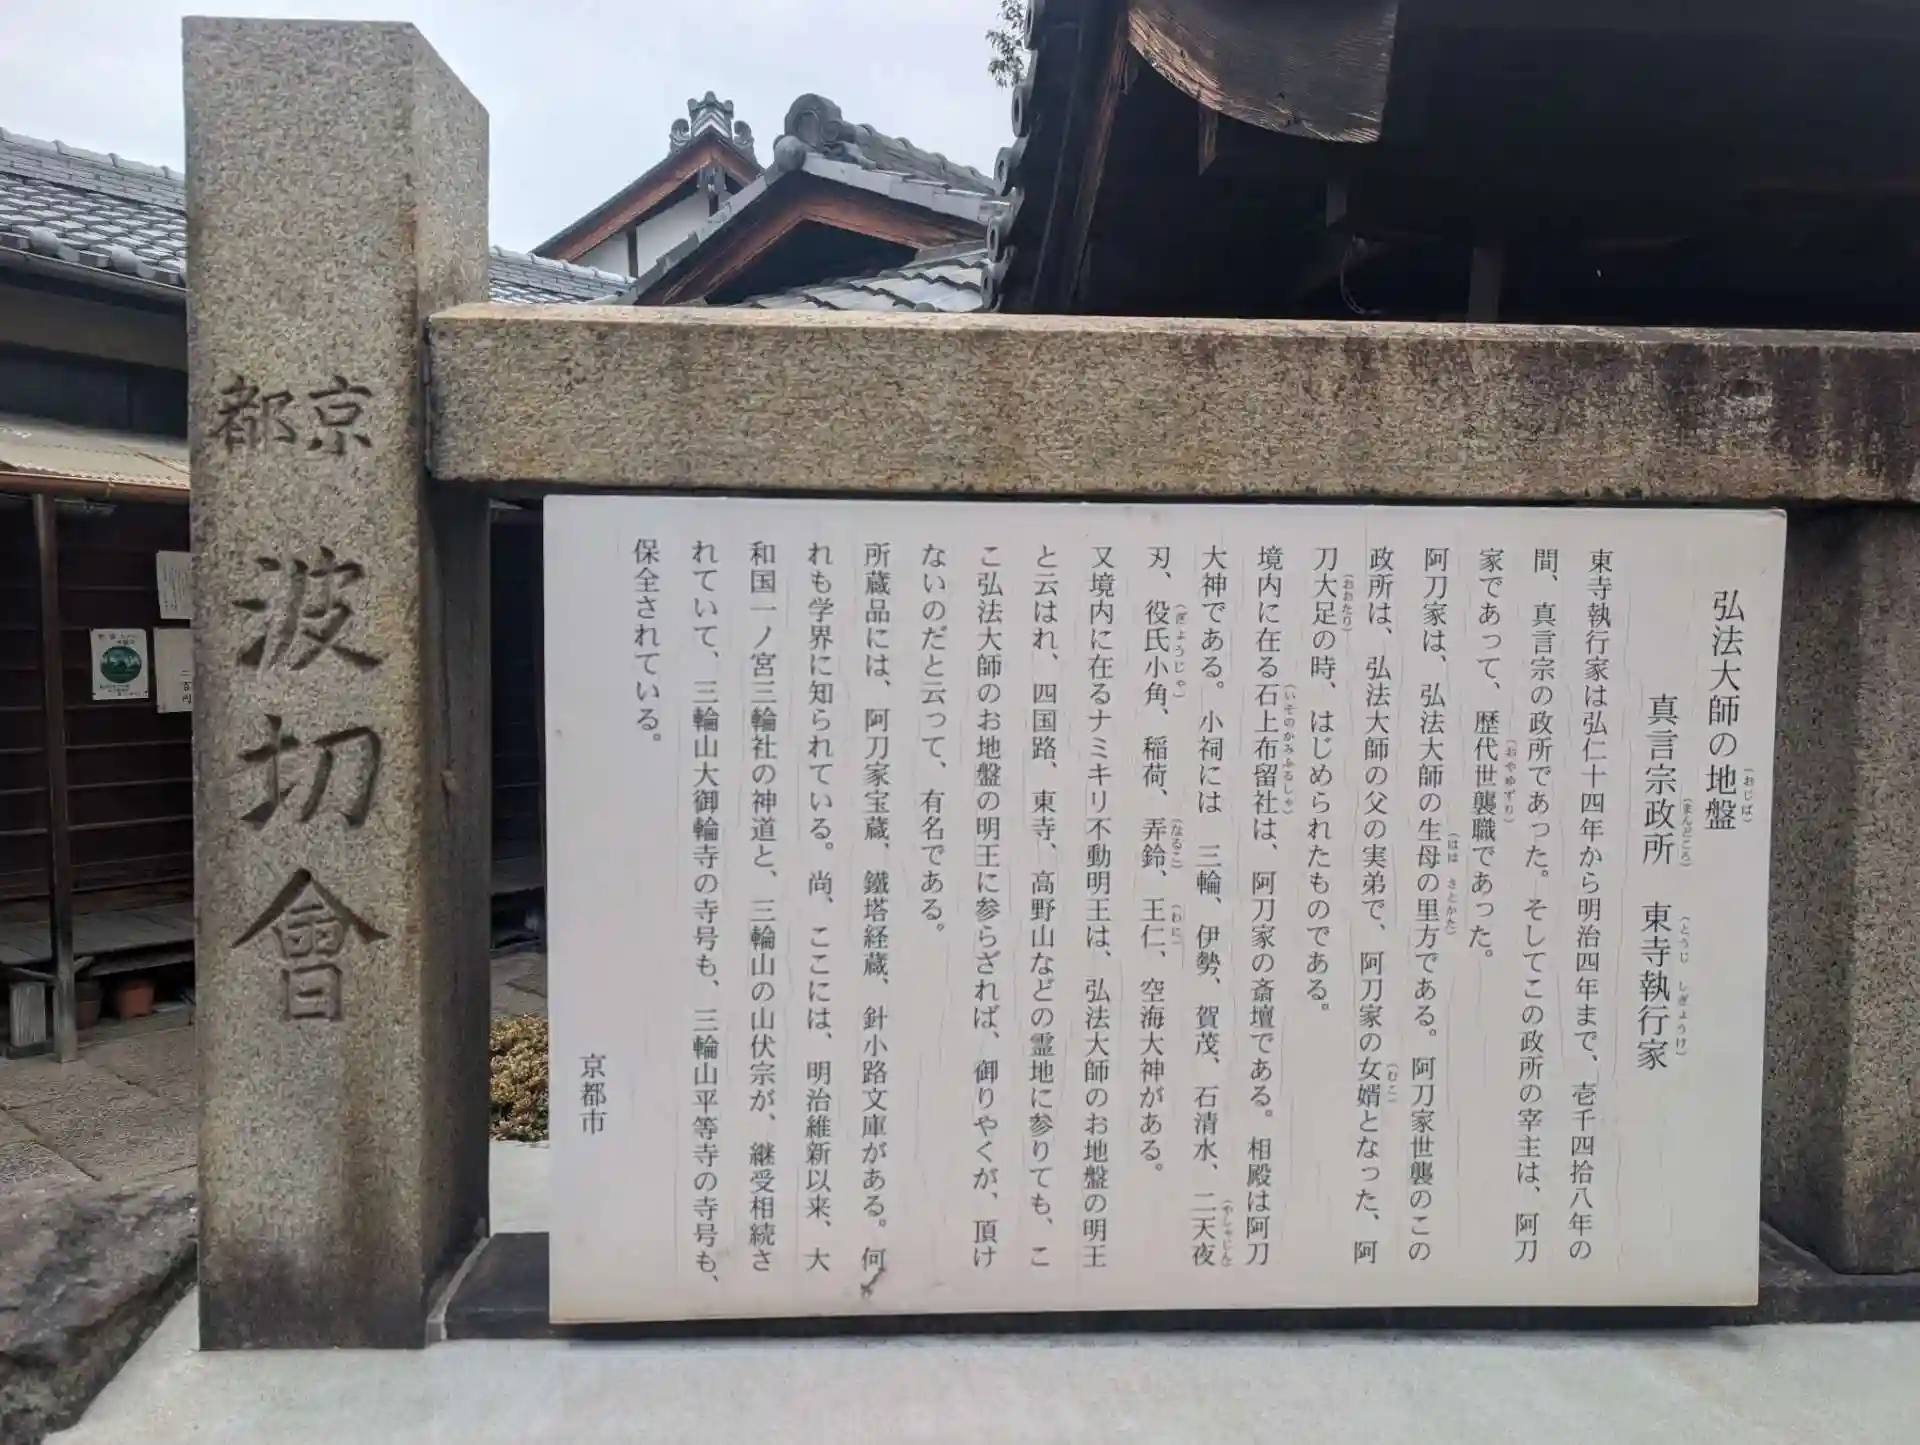 京都
波切會
弘法大師の地盤(おじば)
真言宗政所(まんどころ) 東寺執行家(とうじ しぎょうけ)
東寺執行家は弘仁十四年から明治四年まで、壱千四拾八年の
間、真言宗の政所であった。そしてこの政所の宰主は、阿刀
家であって、歴代世襲職(おやゆずり)であった。
阿刀家は、弘法大師の生母(はは)の里方(さとかた)である。阿刀家世襲のこの
政所は、弘法大師の父の実弟で、阿刀家の女婿(むこ)となった、阿
刀大足(おおたり)の時、はじめられたものである。
境内に在る石上布留社(いそのかみふるしゃ)は、阿刀家の斎壇である。相殿は阿刀
大神である。小祠には 三輪、伊勢、賀茂、石清水、二天夜
刃(やしゃじん)、役氏小角(ぎょうじゃ)、稲荷、弄鈴(なるこ)、王仁(わに)、空海大神がある。
又境内に在るナミキリ不動明王は、弘法大師のお地盤の明王
と云はれ、四国路、東寺、高野山などの霊地に参りても、こ
こ弘法大師のお地盤の明王に参らざれば、御りやくが、頂け
ないのだと云って、有名である。
所蔵品には、阿刀家宝蔵、鐵塔経蔵、針小路文庫がある。何
れも学界に知られている。尚、ここには、明治維新以来、大
和国一ノ宮三輪社の神道と、三輪山の山伏宗が、継受相続さ
れていて、三輪山大御輪寺の寺号も、三輪山平等寺の寺号も、
保全されている。
京都市